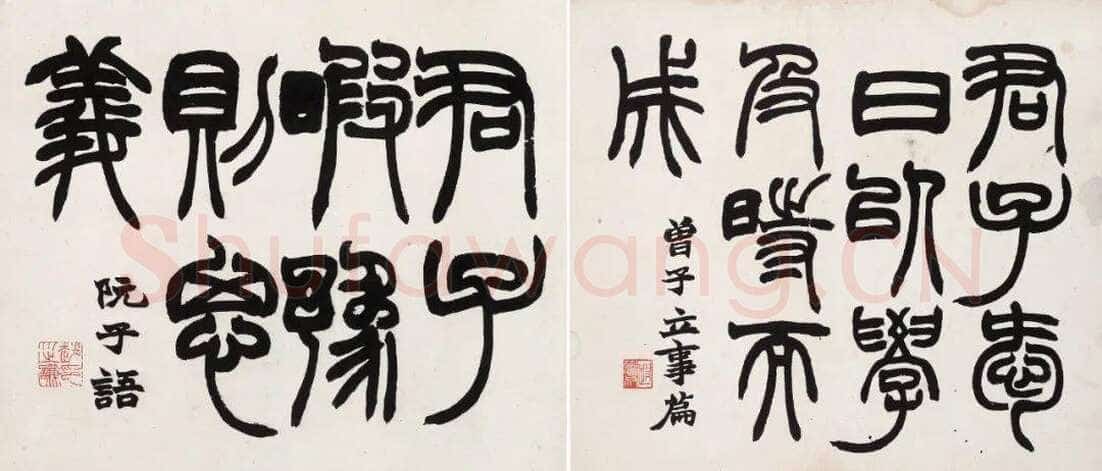 君子愛
日以學
及時而
成
曾子立事篇
君子
暇豫
則思
義
阮子語
Shufawang.CN